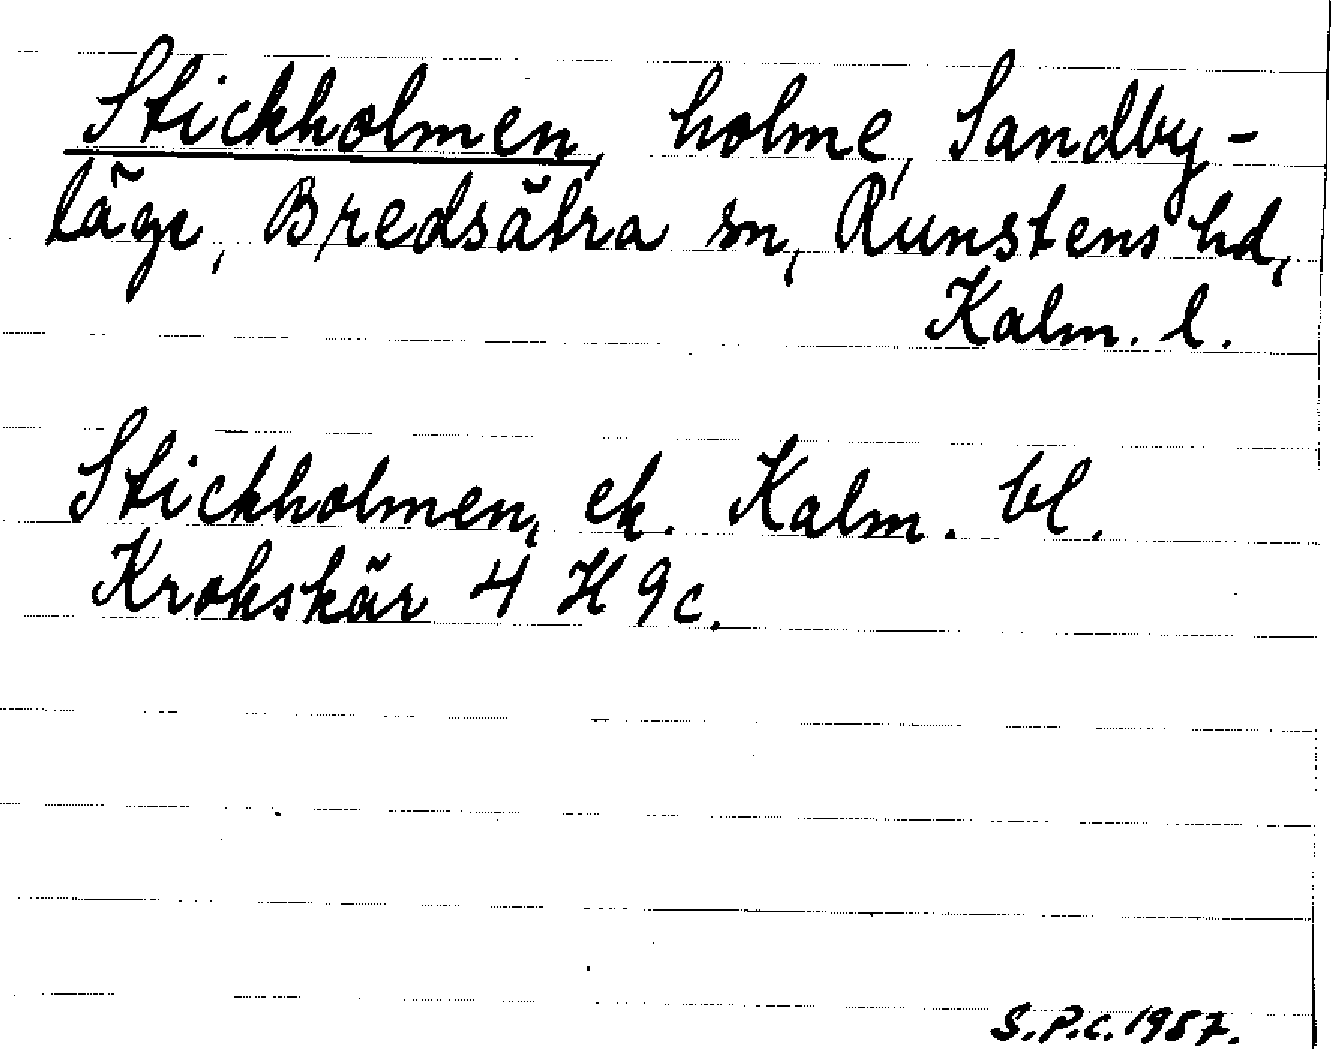 Stickholmen, holme, Sandby-
läge, Bredsätra sn, Runstens hd,
Kalm. l.
Stickholmen, ek. Kalm. bl.
Krokskär 4 H 9c.
S.P.C. 1957.